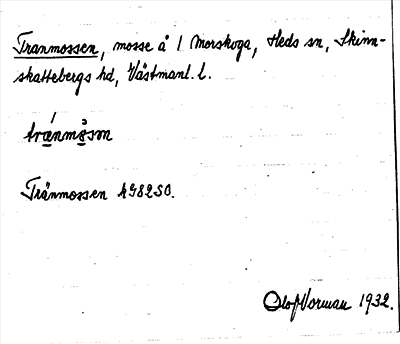 Tranmossen, mosse å 1 Morskoga, Heds sn, Skinn-
skattebergs hd, Västmanl. l.
tránmòsen
Tränmossen AG82SO.
Olof Vorman 1932.